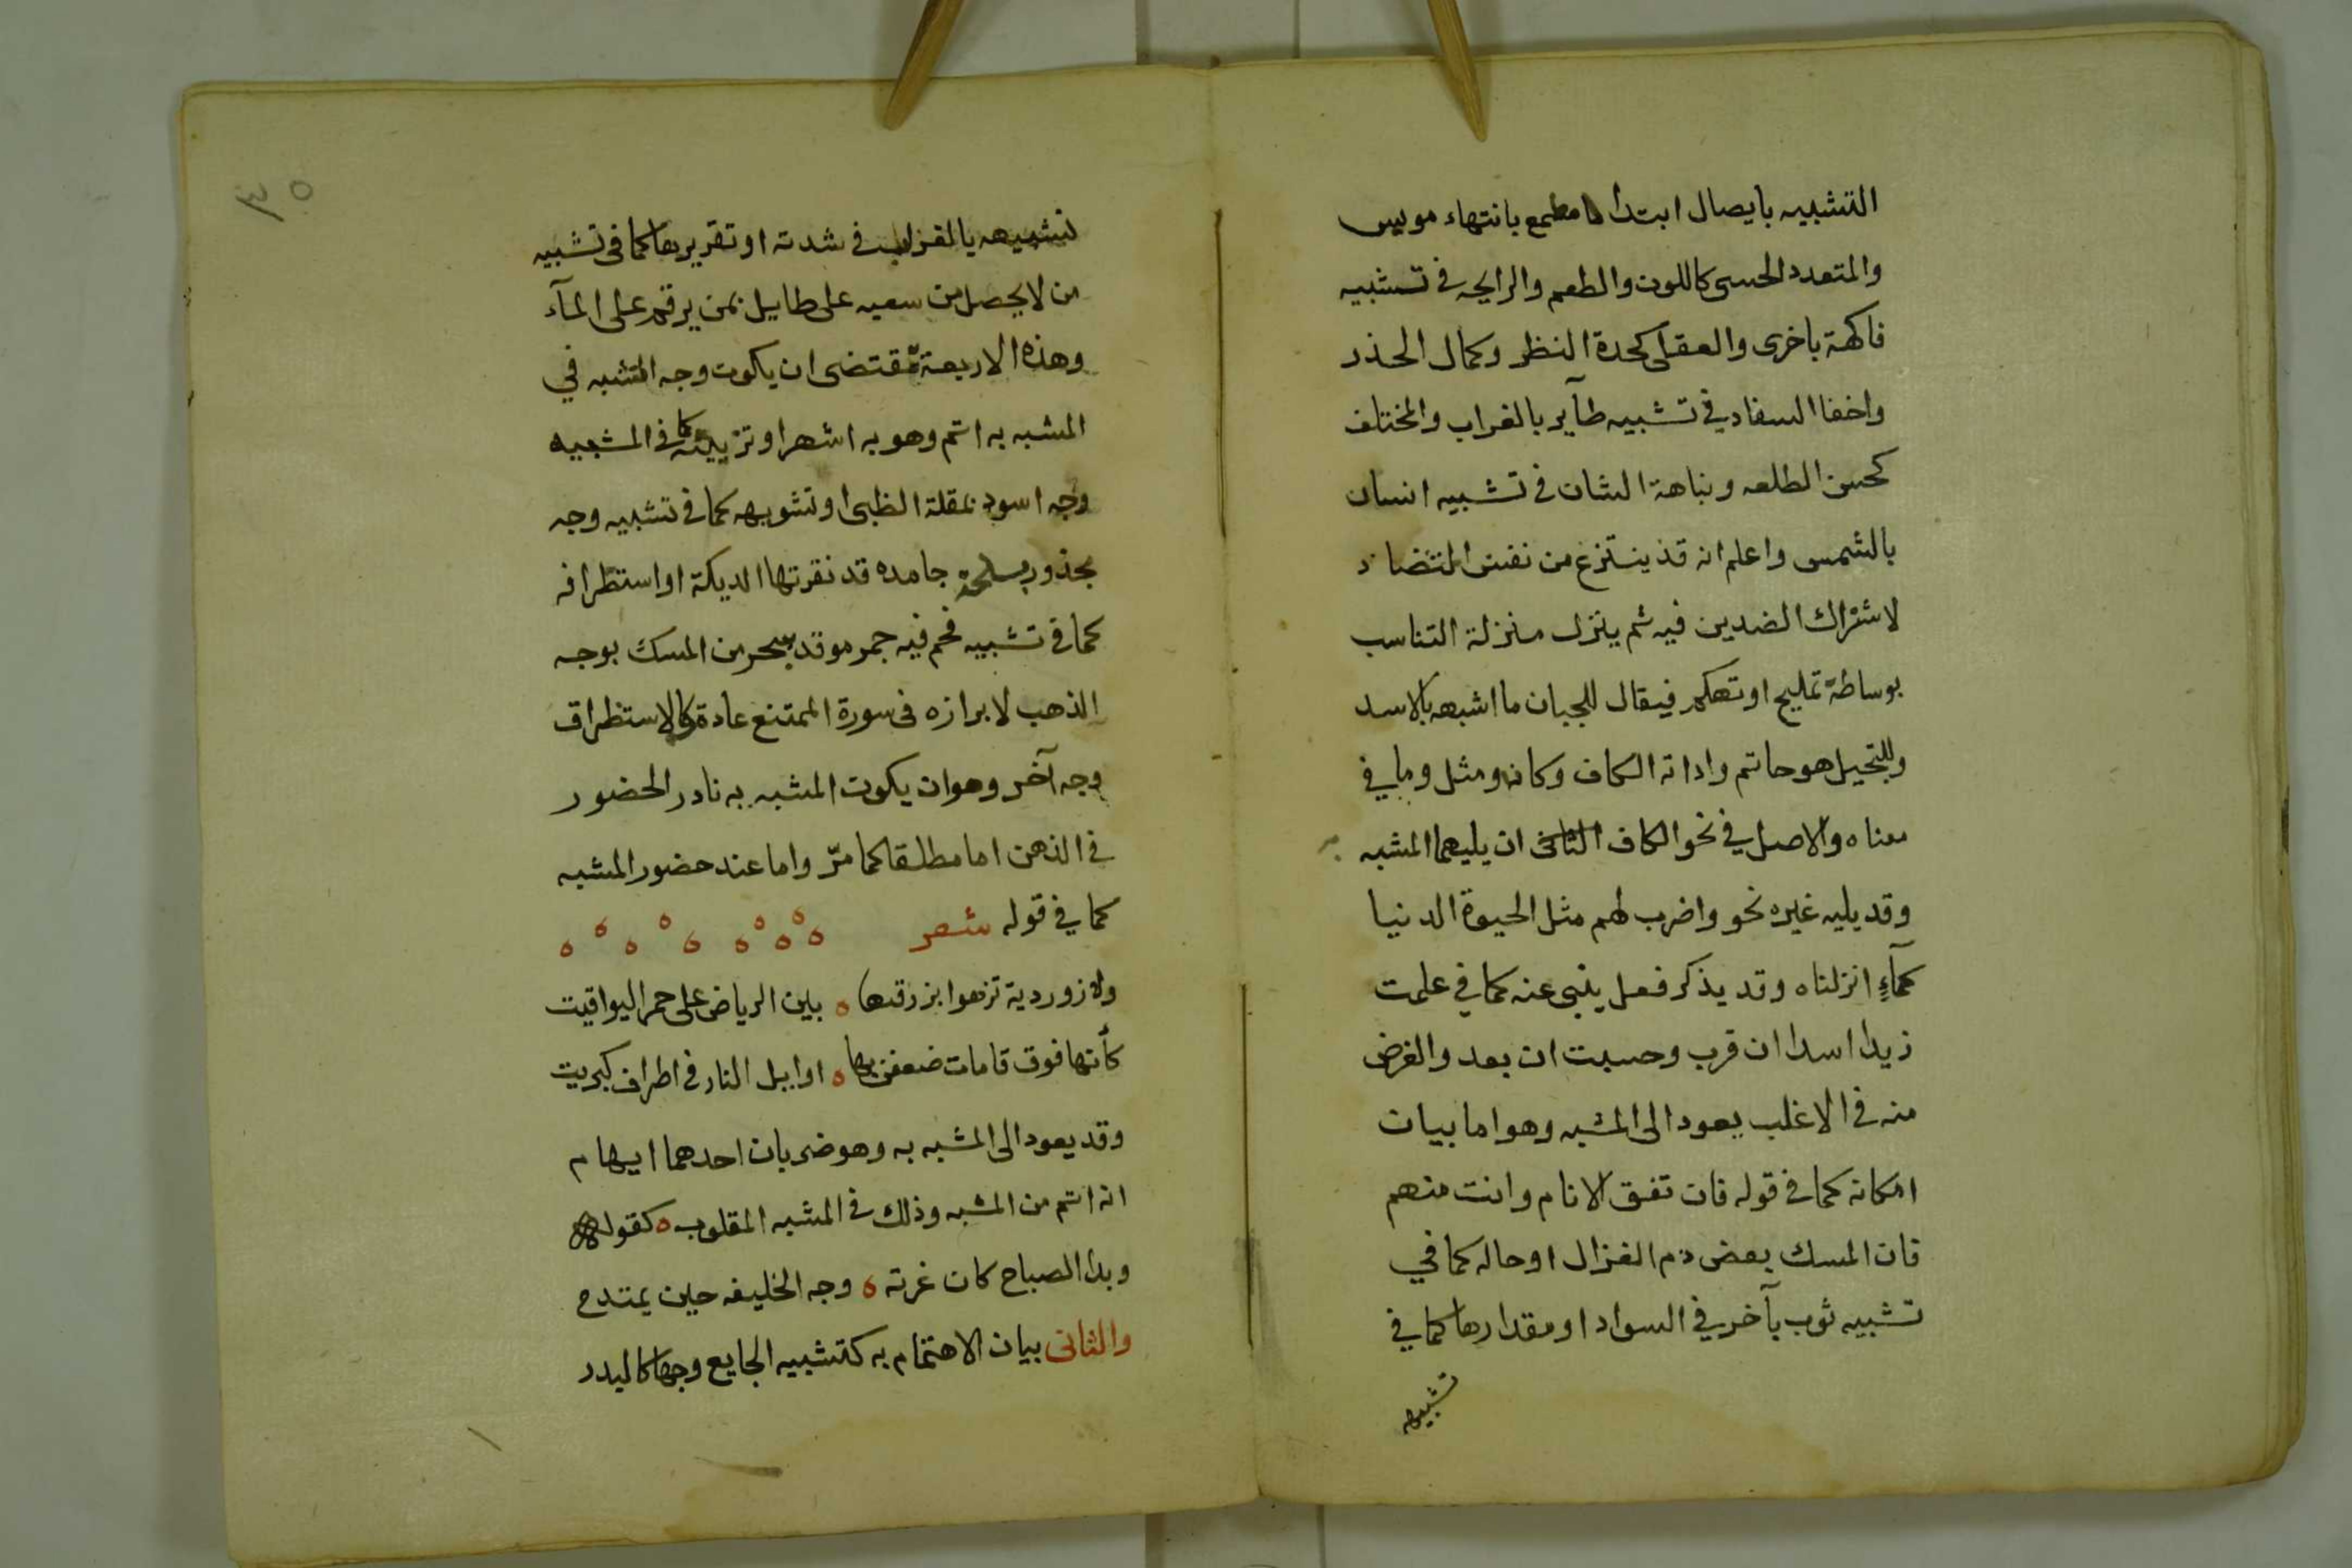 التشبيه بايصال ابتداء مطمع بانتهاء مويس
والمتعدد الحسى كاللون والطعم والرايحه فى تشبيه
فاكهة باخرى والعقلى كحدة النظر وكمال الحذر
واخفا السفاد فى تشبيه طآير بالغراب والمختلف
كحسن الطلعه ونباهة الشان فى تشبيه انسان
بالشمس واعلم انه قد ينتزع من نفس التضاد
لاشتراك الضدين فيه ثم ينزل منزلة التناسب
بوساطة تمليح او تهكم فيقال للجبان ما اشبهه بالاسد
وللبخيل هو حاتم واداته الكاف وكان ومثل وما في
معناه والاصل في نحو الكاف ان يليها المشبه
وقد يليه غيره نحو واضرب لهم مثل الحيوة الدنيا
كمآءٍ انزلناه وقد يذكر فعل ينبى عنه كما في علمت
زيدا اسدا ان قرب وحسبت ان بعد والغرض
منه فى الاغلب يعود الى المشبه وهو اما بيان
امكانه كما فى قوله فان تفق الانام وانت منهم
فان المسك بعض دم الغزال او حاله كما في
تشبيه ثوب بآخر في السواد او مقدارها كما في
تشبيهه
٣٥
تشبيهه بالغراب فى شدته او تقريرها كما فى تشبيه
من لا يحصل من سعيه على طايل بمن يرقم على المآء
وهذه الاربعة تقتضى ان يكون وجه الشبه في
المشبه به اتم وهو به اشهر او تزيينه كما فى المشبيه
وجه اسود بمقلة الظبى او تشويهه كما فى تشبيه وجه
مجذور بسلحة جامده قد نقرتها الديكة او استظرافه
كما فى تشبيه فحم فيه جمر موقد ببحر من المسك بوجه
الذهب لابرازه فى سورة الممتنع عادة وللاستظراف
وجه آخر وهو ان يكون المشبه به نادر الحضور
فى الذهن اما مطلقا كما مرّ واما عند حضور المشبه
كما في قوله شعر
ولازوردية تزهوا بزرقتها ه بين الرياض على حمر اليواقيت
كأنها فوق قامات ضعفن بها ه اوايل النار فى اطراف كبريت
وقد يعود الى المشبه به وهو ضربان احدهما ايهام
انه اتم من المشبه وذلك فى المشبه المقلوب ه كقوله
وبدا الصباح كان غرته ه وجه الخليفه حين يمتدح
والثانى بيان الاهتمام به كتشبيه الجايع وجها كالبدر